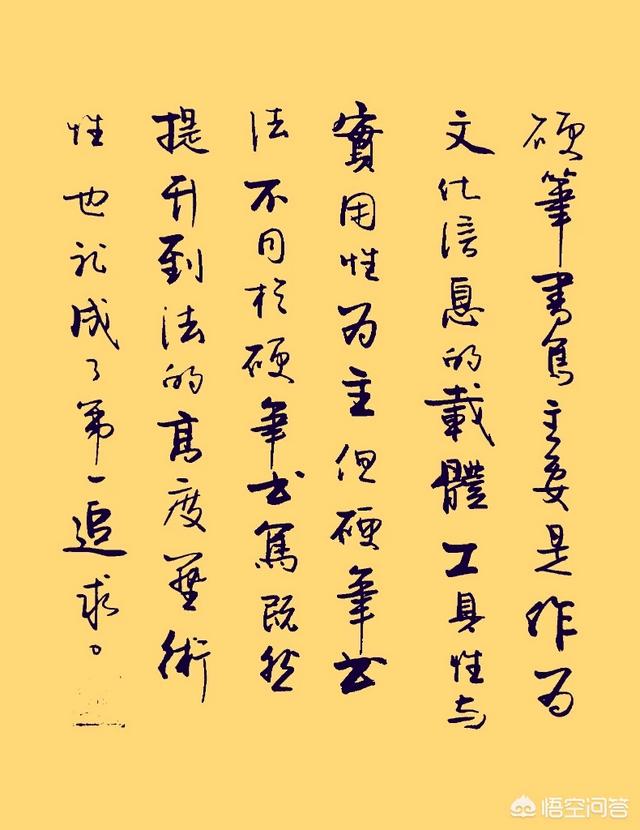 硬筆書寫主要是作為
文化信息的載體工具性与
實用性为主但硬筆书
法不同於硬筆书寫既然
提升到法的高度藝術
性也就成了第一追求。
悟空问答